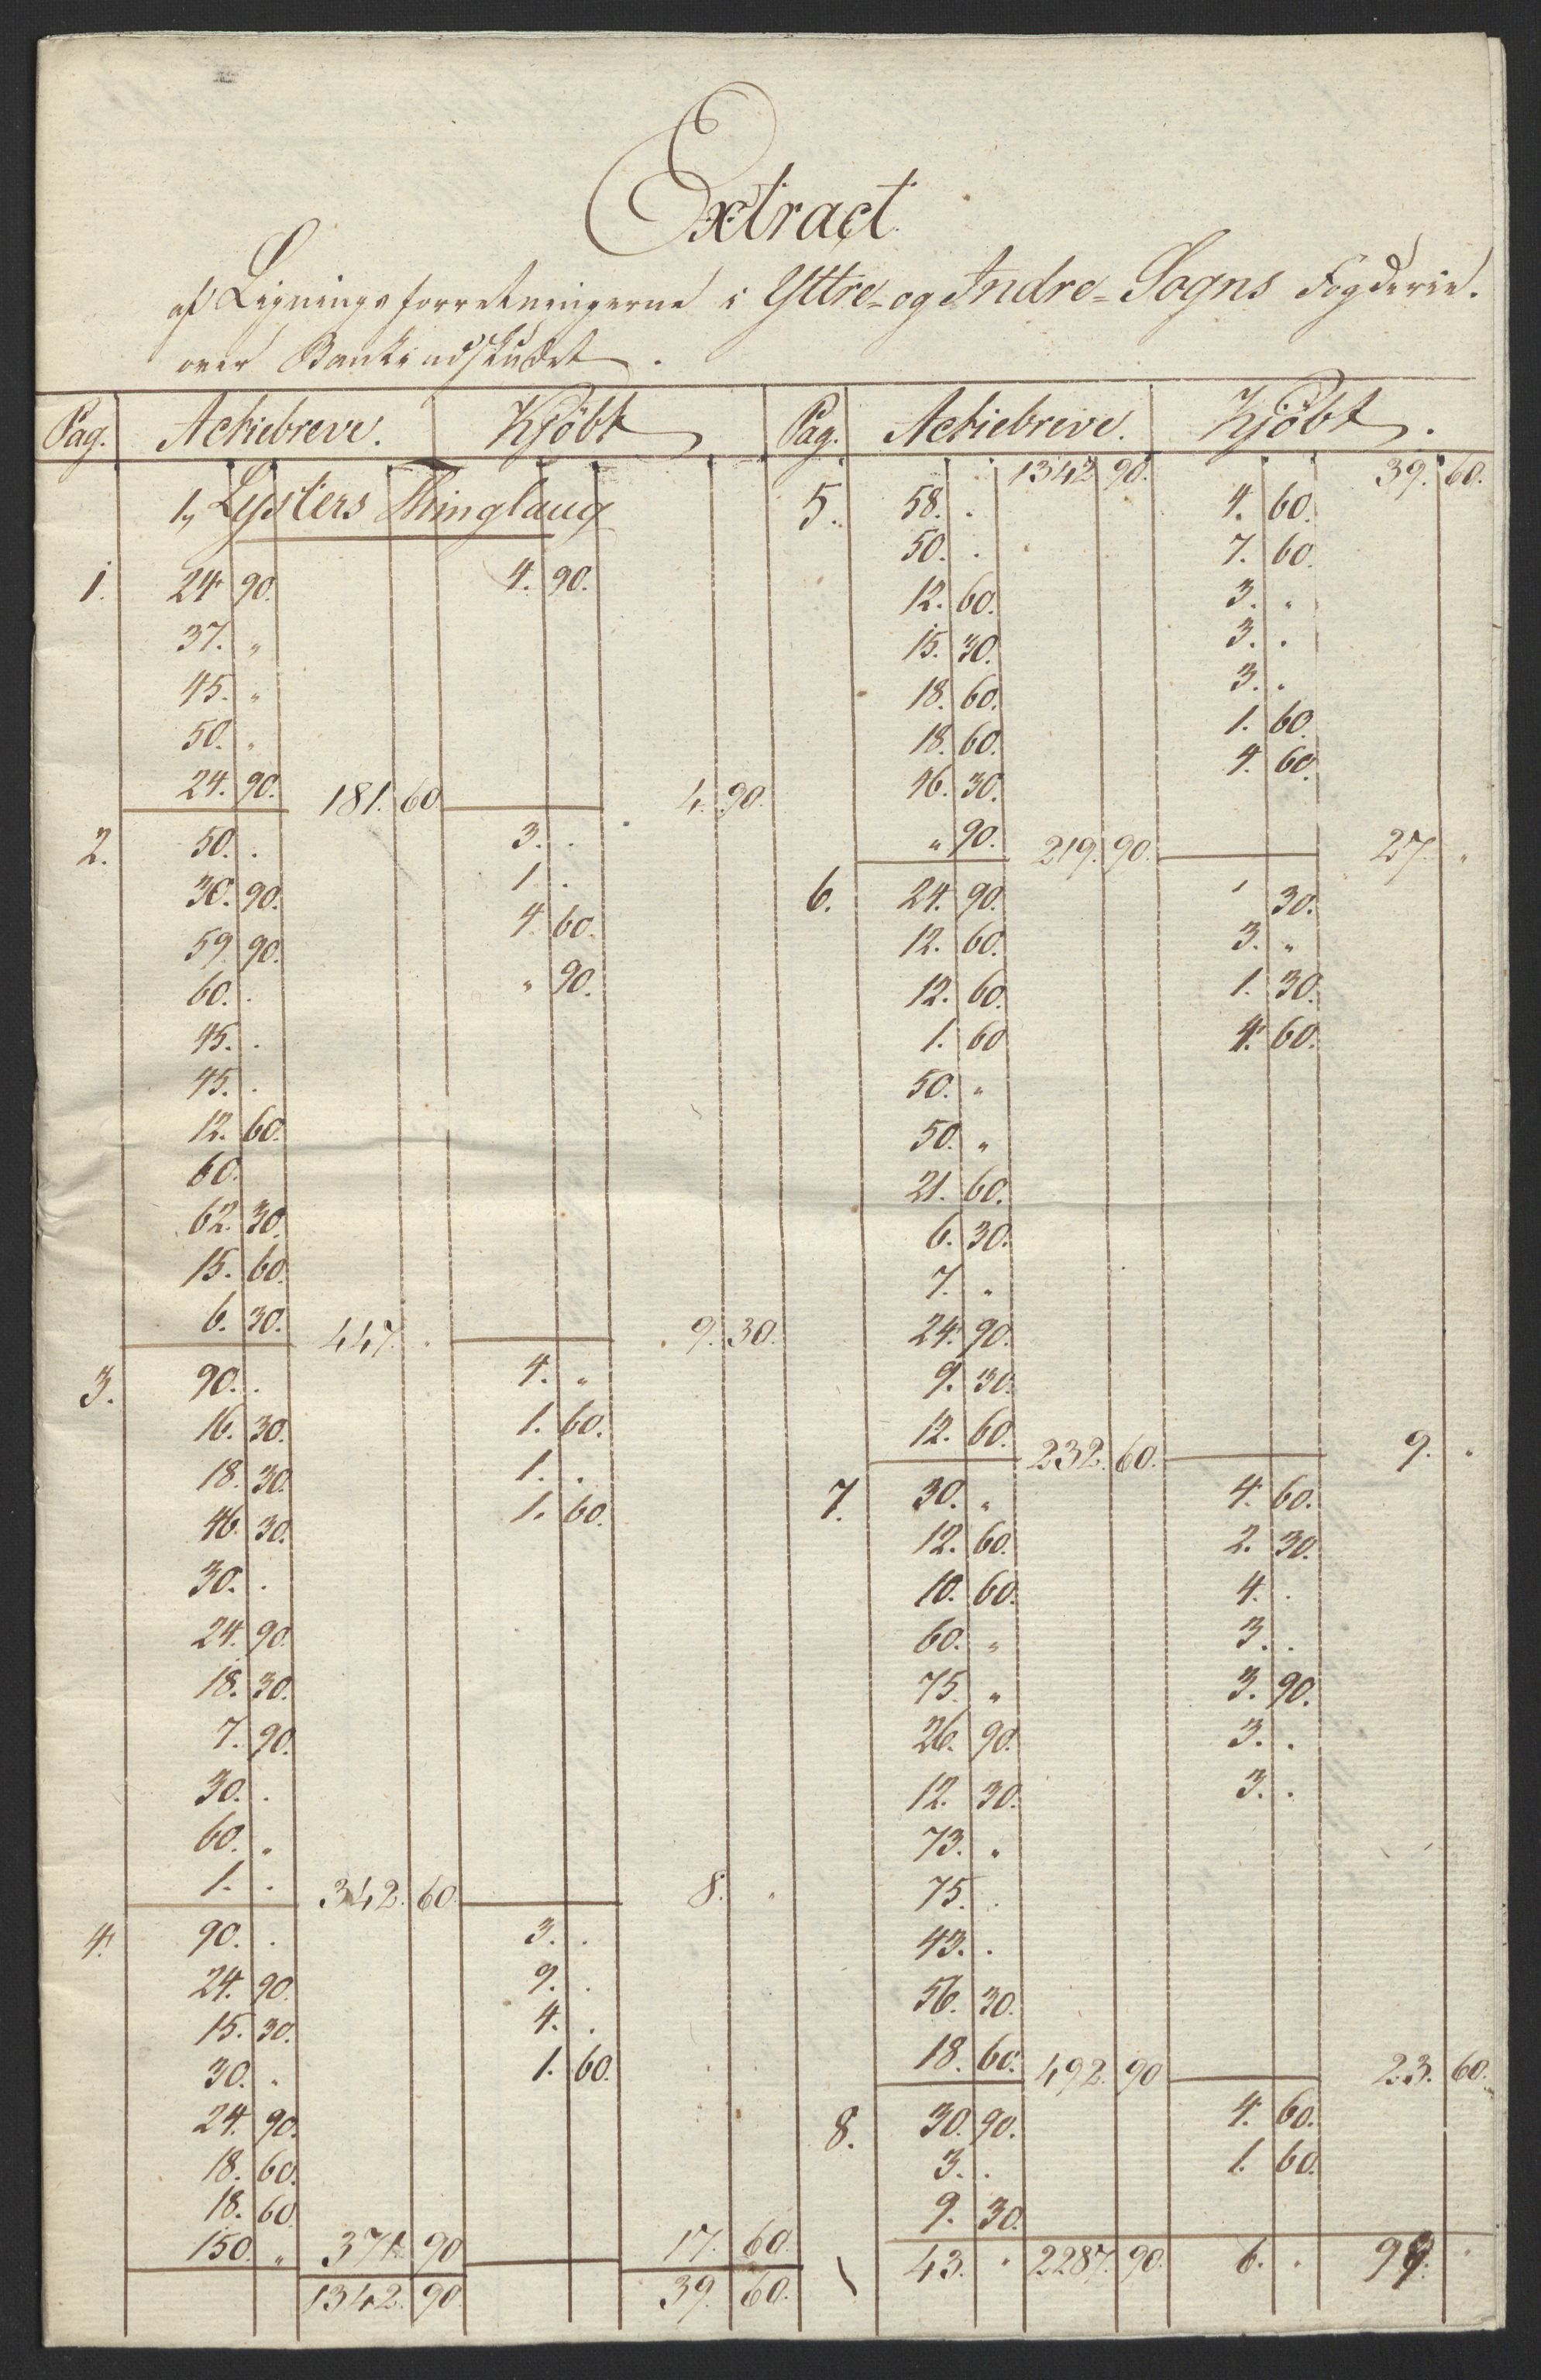 Extract
af Ligningsforretningerne i Yttre- og Indre- Sogns Fogderie.
over Bankindskudet.
Pag. Actiebreve. Kjöbt
1, Lysters Thinglaug
1. 24 90. 4. 90.
37. "
45. "
50. "
24. 90. 181. 60 4. 90.
2. 50. . 3. .
30. 90. 1 .
59. 90. 4. 60.
60. . " 90.
45. .
45. .
12. 60.
60.
62. 30.
15. 60.
6. 30. 447. . 9. 30.
3. 90. . 4. "
16. 30. 1. 60.
18. 30. 1. .
46. 30. 1. 60.
30. .
24. 90.
18. 30.
7. 90.
30. .
60. "
1. . 342. 60 8. "
4. 90. . 3. .
24. 90. 9. .
15. 30. 4. .
30. " 1. 60.
24. 90.
18. 60.
18. 60
150. " 371. 90 17. 60.
1342. 90. 39. 60.
Pag. Actiebreve. Kjöbt.
1342 90. 39. 60.
5. 58. . 4. 60.
50. . 7. 60.
12. 60. 3. "
15. 30. 3. .
18. 60. 3. "
18. 60. 1. 60.
46. 30. 4. 60.
" 90. 219. 90. 27. "
6. 24. 90. ' 30.
12. 60. 3. "
12. 60. 1. 30.
1. 60 4. 60.
50. "
50. "
21. 60.
6. 30.
7. "
24. 90.
9. 30.
12. 60. 232. 60. 9. "
7. 30. " 4. 60.
12. 60. 2. 30.
10. 60. 4. .
60. " 3. .
75. " 3. 90.
26. 90. 3. .
12. 30. 3. .
73. "
75. .
43. .
56. 30.
18. 60. 492. 90 23. 60.
8. 30. 90. 4. 60.
3. . 1. 60.
9. 30.
43. " 2287. 90. 6. . 99. "